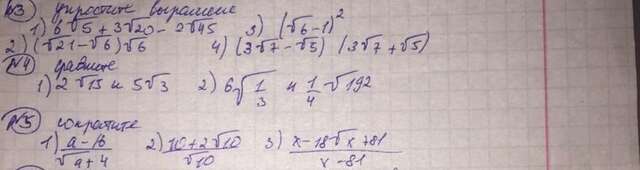 №3 упростите выражение
1) 6√5 + 3√20 - 2√45 3) (√6-1)²
2) (√21-√6)√6 4) (3√7-√5) (3√7+√5)
№4 сравните
1) 2√13 и 5√3 2) 6√(1/3) и 1/4 √192
№5 сократите
1) (a-16)/(√a+4) 2) (10+2√10)/√10 3) (x-18√x+81)/(x-81)